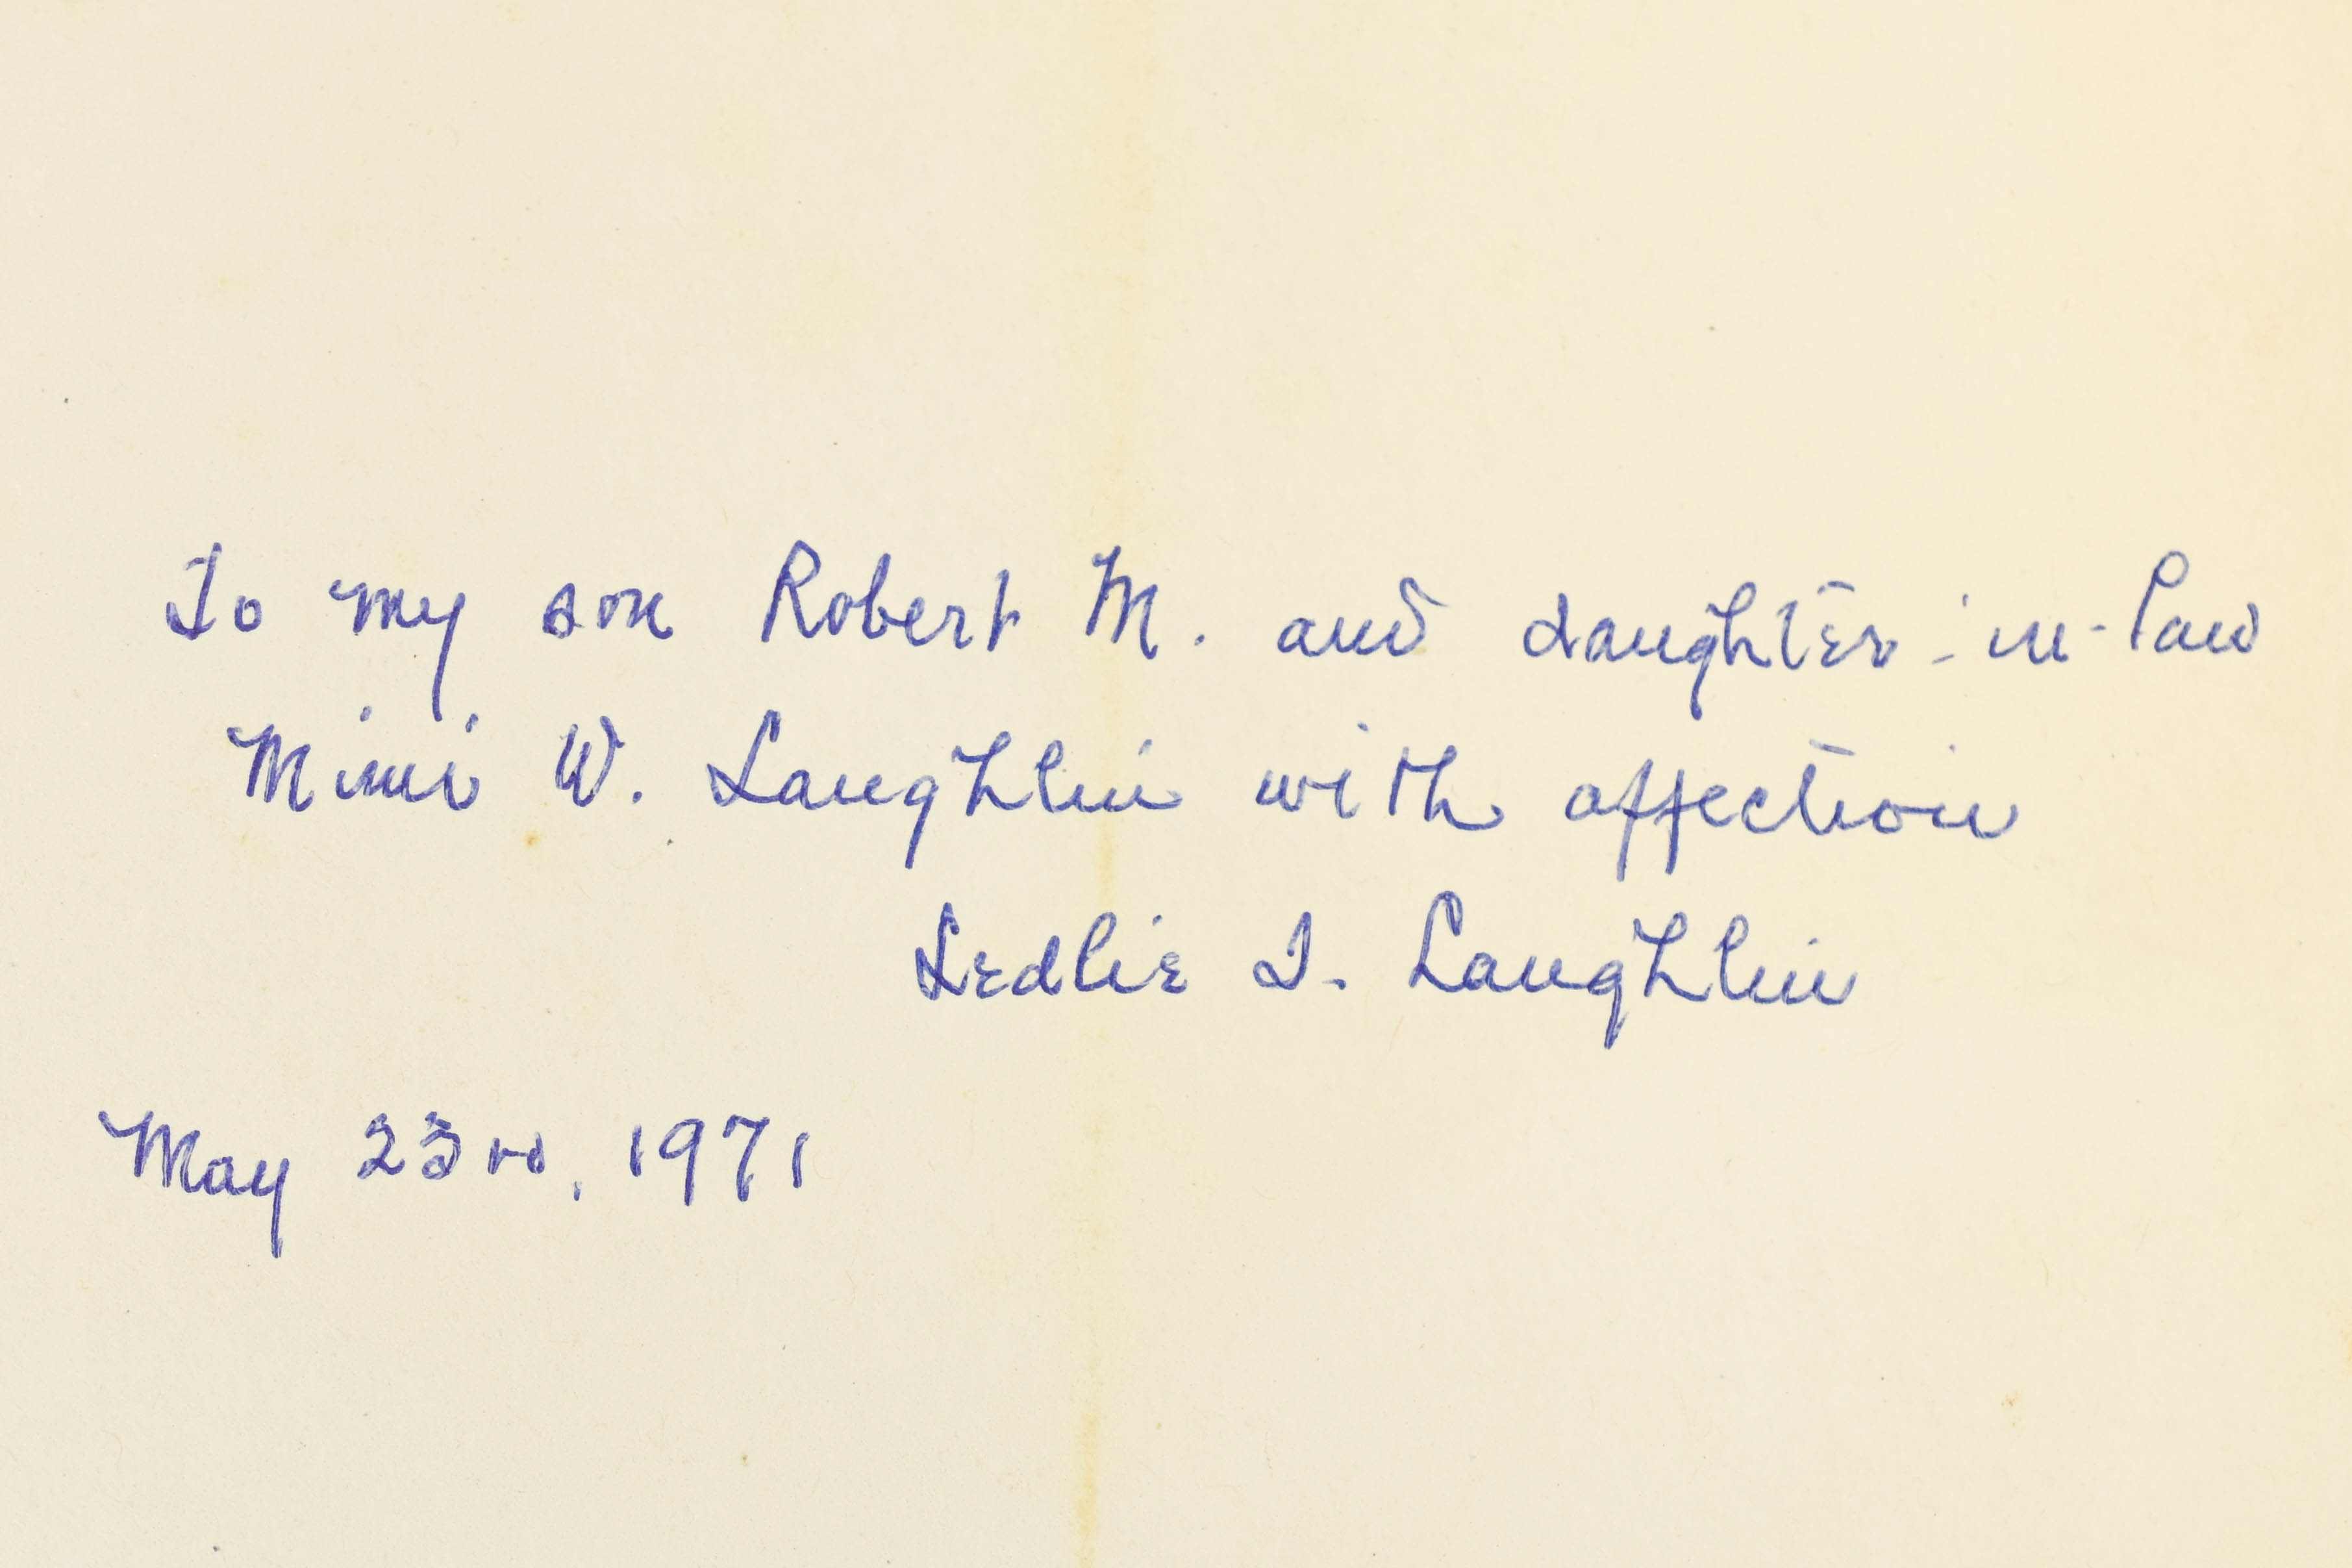 To my son Robert M. and daughter-in-law
Mimi W. Laughlin with affection
Ledlie I. Laughlin
May 23rd, 1971